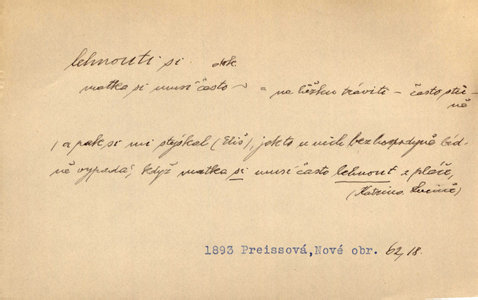 lehnouti si dok.
matka si musí často ~ = na lůžku tráviti – často stůně
(a pak si mi stýskal (Eliš), jak to u nich bez hospodyně bídně vypadá, když matka si musí často lehnout a pláče,
1893 Preissová, Nové obr. 62,18.